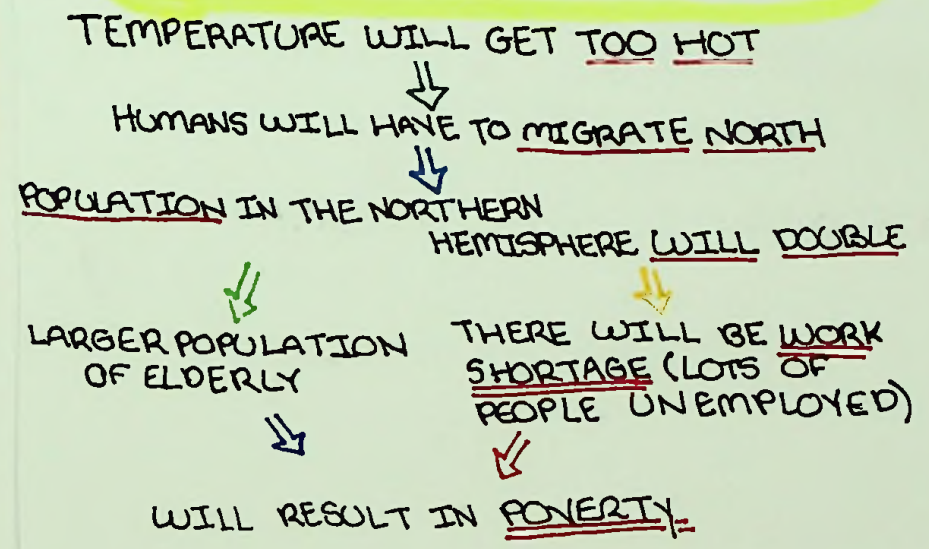 TEMPERATURE WILL GET TOO HOT
HUMANS WILL HAVE TO MIGRATE NORTH
POPULATION IN THE NORTHERN
HEMISPHERE WILL DOUBLE
LARGER POPULATION
OF ELDERLY
THERE WILL BE WORK
SHORTAGE (LOTS OF
PEOPLE UNEMPLOYED)
WILL RESULT IN POVERTY